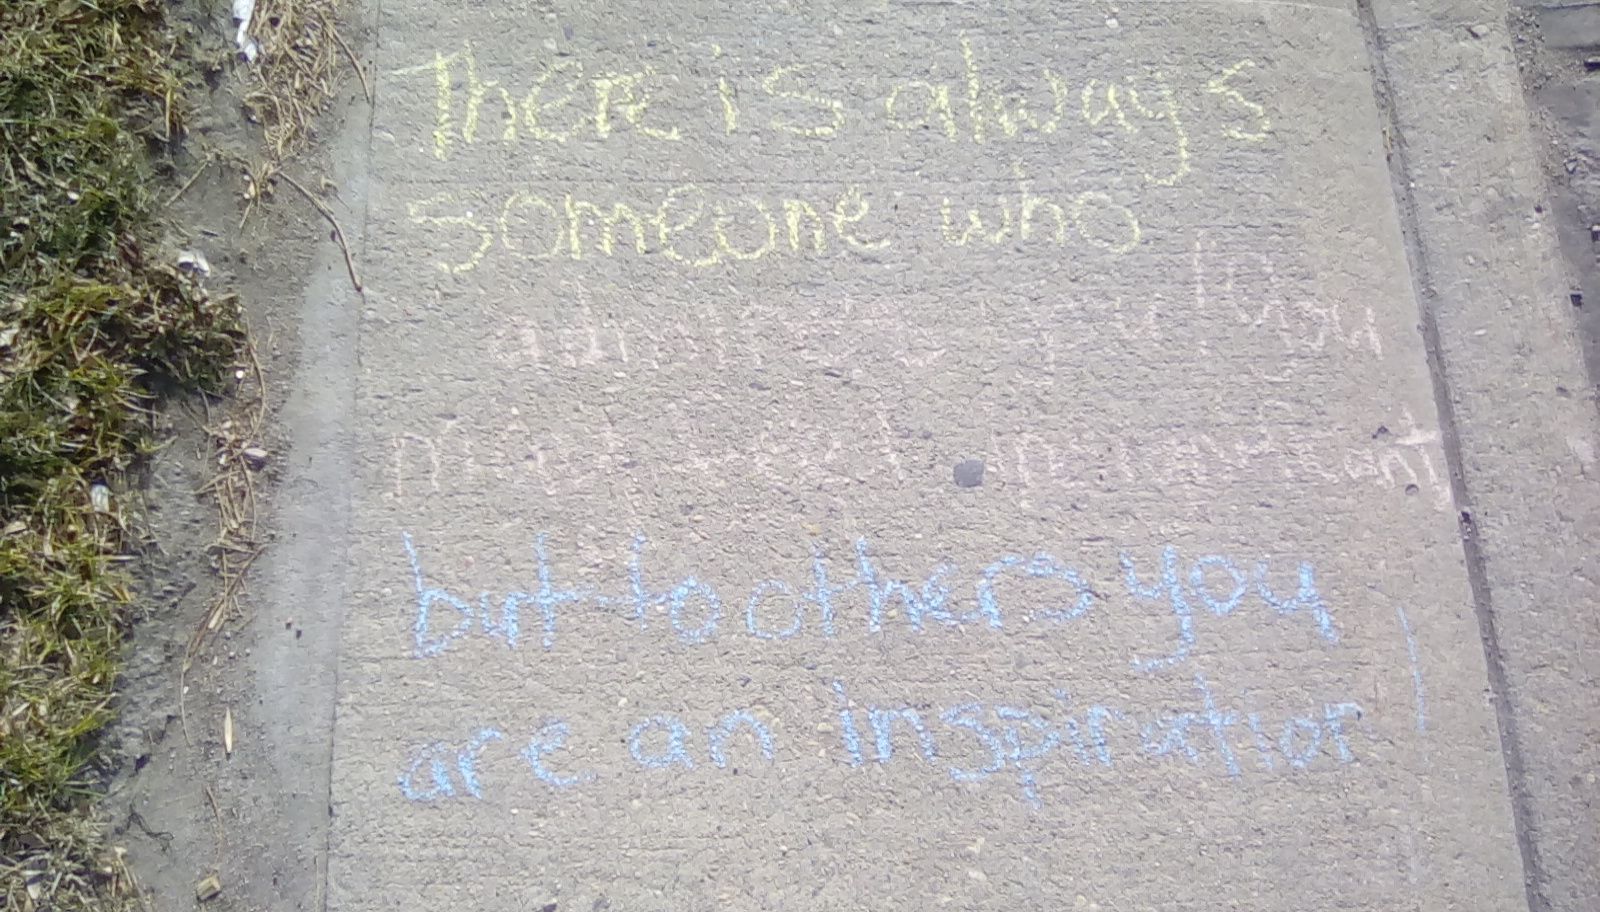 There is always
someone who
admires you. You
might feel insignificant
but to others you
are an inspiration!